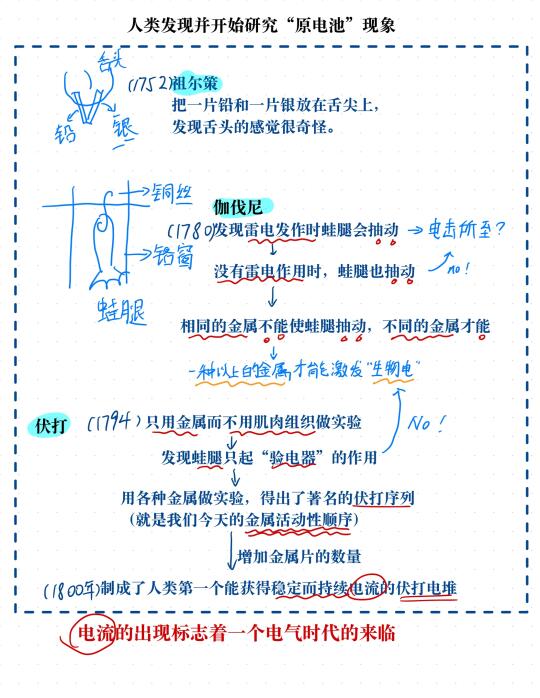 人类发现并开始研究“原电池”现象
舌头
(1752)祖尔策
把一片铅和一片银放在舌尖上，
发现舌头的感觉很奇怪。
铅
银
铜丝
伽伐尼
(1780)发现雷电发作时蛙腿会抽动
电击所至？
铬窗
没有雷电作用时，蛙腿也抽动
no!
蛙腿
相同的金属不能使蛙腿抽动，不同的金属才能
一种以上的金属，才能激发“生物电”
伏打
(1794)只用金属而不用肌肉组织做实验
No!
发现蛙腿只起“验电器”的作用
用各种金属做实验，得出了著名的伏打序列
(就是我们今天的金属活动性顺序)
增加金属片的数量
(1800年)制成了人类第一个能获得稳定而持续电流的伏打电堆
电流的出现标志着一个电气时代的来临